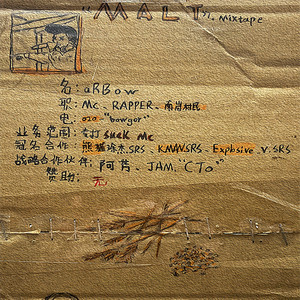 "MALT". Mixtape
名：aRBow
职：Mc、RAPPER、南岸村民
电：020-"bowgor"
业务范围：专打 suck Mc
冠名合作：熊猫涂杰.SRS、KMAN.SRS、Explosive v.SRS
战略合作伙伴：阿芳、JAM."CTo"
赞助：无